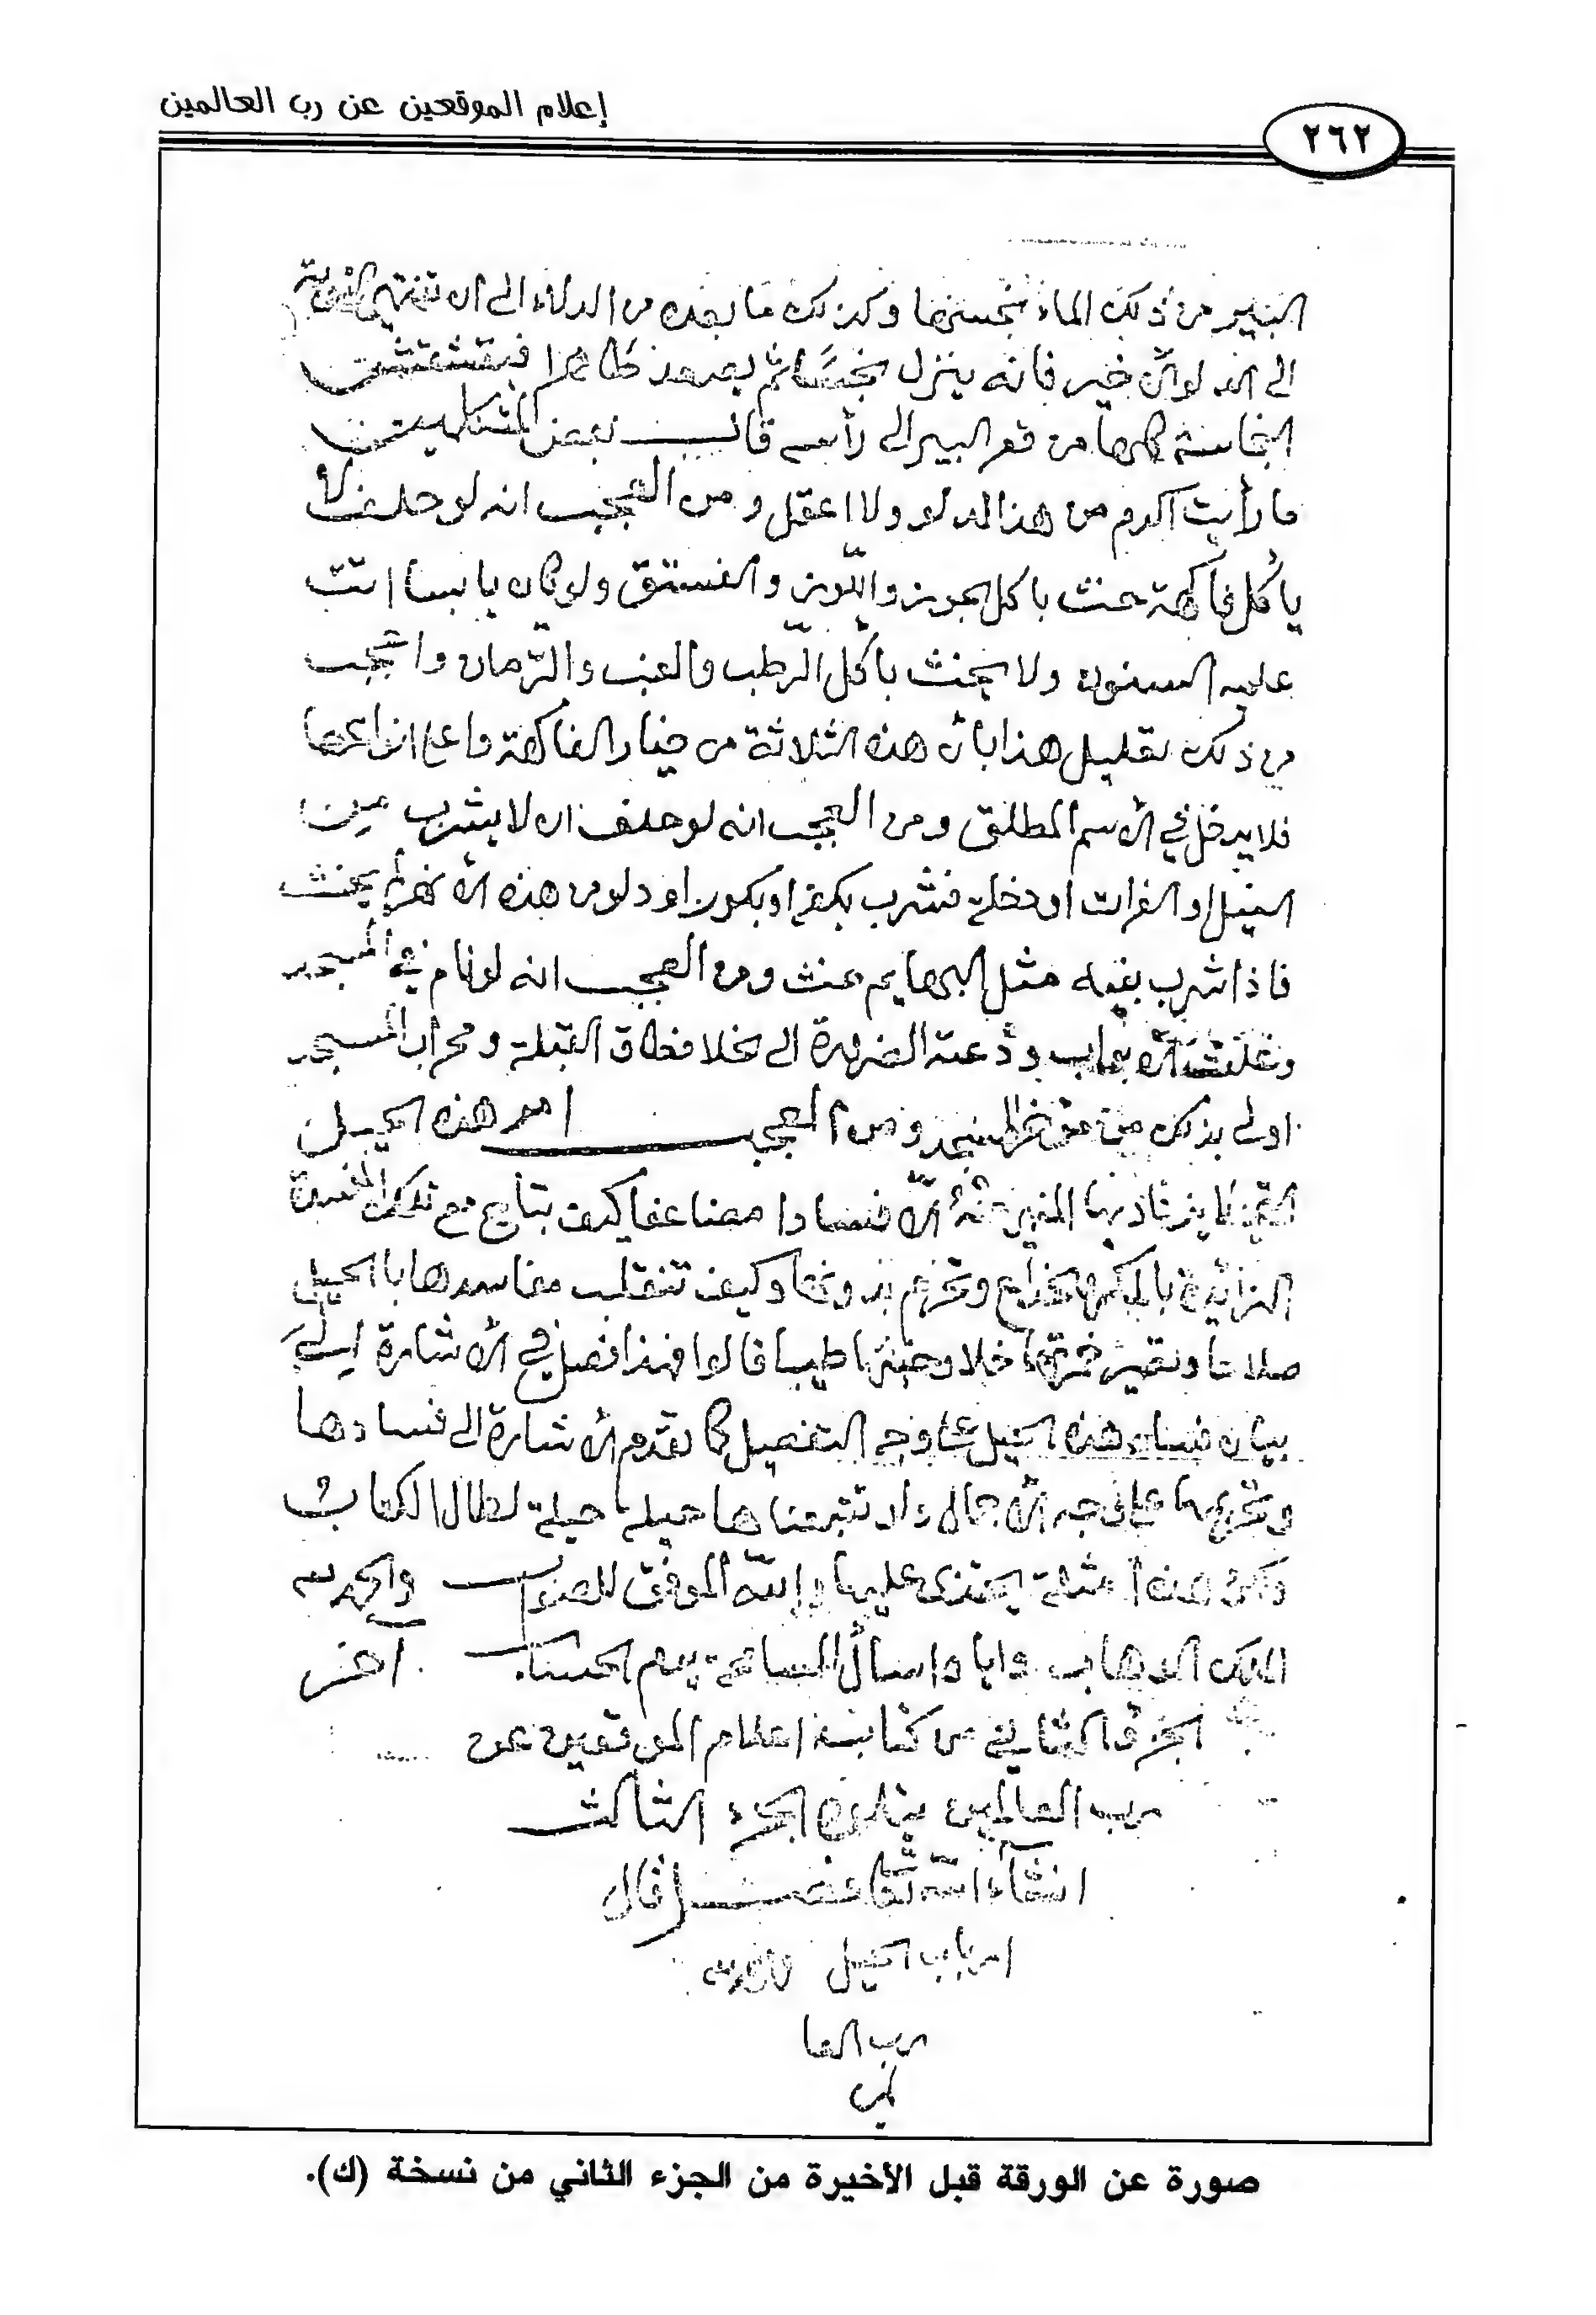 إعلام الموقعين عن رب العالمين
٢٦٢
البير من ذلك الماء نجسها وكذلك ما بعده من الدلاء الى ان تنتهي النوبة
الى الدلو الاخير فانه ينزل نجسًا ثم يصعد طاهرا فيقشقش
النجاسة كلها من قعر البير الى رأسه قال بعض المتكلمين
ما رأيت اكرم من هذا الدلو ولا اعقل ومن العجب انه لو حلف لا
يأكل فاكهة حنث باكل الجوز واللوز والفستق ولو كان يابسا اتت
عليه السنون ولا يحنث بأكل الرّطب والعنب والرّمان واعجب
من ذلك تعليل هذا بان هذه الثلاثة من خيار الفاكهة واعلا انواعها
فلا يدخل في الاسم المطلق ومن العجب انه لو حلف ان لا يشرب من
النيل او الفرات او دجلة فشرب بكفه او بكوز او دلو من هذه الانهر لم يحنث
فاذا شرب بفيه مثل البهايم حنث ومن العجب انه لو نام في المسجد
وغلقت الابواب ودعته الضرورة الى الخلا فطاق القبلة ومحراب المسجد
اولى بذلك من مؤخر المسجد ومن العجب امر هذه الحيل
التي لا يزداد بها المنهي عنه الّا فسادا مضاعفا كيف بتاح مع تلك المفسدة
الزائدة بالمكر والخداع وتحرم بدونها وكيف تنقلب مفاسدها بالحيل
صلاحا وتصير خمرتها خلا وخبثها طيبا قالوا فهذا فصل في الاشارة الى
بيان فساد هذه الحيل على وجه التفصيل كما تقدم الاشارة الى فسادها
وتحريمها على وجه الاجمال ولو تتبعناها حيلة حيلة لطال الكتاب
ولكن هذه امثلة يحتذى عليها والله الموفق للصواب والحمد لله
الملك الوهاب واياه اسأل المسامحة يوم الحساب. آخر
الجزء الثاني من كتاب اعلام الموقعين عن
رب العالمين يتلوه الجزء الثالث
انشآء الله تعالى فصل قال
ارباب الحيل
رب العا
لمين
صورة عن الورقة قبل الأخيرة من الجزء الثاني من نسخة (ك).